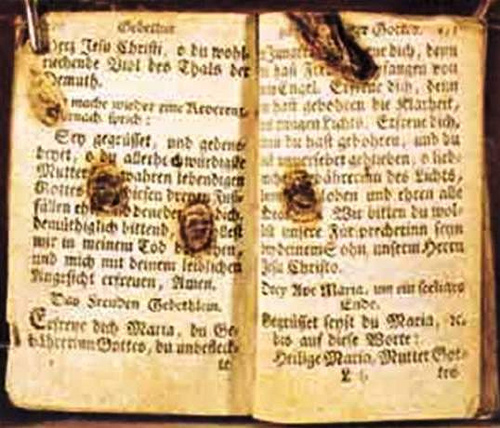 Gebetlein
Herz Jesu Christi, o du wohl
riechende Viol des Thals der
Demuth.
mache wieder eine Reverentz,
darnach sprich:
Sey gegrüsset, und gebene-
deyet, o du allerhochwürdigste
Mutter wahren lebendigen
Gottes diesen dreyen Fuß-
fällen deneben dich,
demüthiglich bittend,
mir in meinem Tod
und mich mit deinem leiblichen
Angesicht erfreuen, Amen.
Das Freuden Gebethlein.
Erfreue dich Maria, du Ge-
bährerinn Gottes, du unbefleck-
te
Gottes.
dich, denn
hast empfangen von
Engel. Erfreue dich, denn
hast gebohren die Klarheit,
ewigen Lichts. Erfreue dich,
du hast gebohren, und du
unversehrt geblieben, o lieb-
des Lichts,
loben und ehren alle
Wir bitten du wol-
lest unsere Fürsprecherinn seyn
bey deinem Sohn, unserm Herrn
Jesu Christo.
Drey Ave Maria, um ein seeliges
Ende.
Gegrüsset seyst du Maria, ꝛc.
bis auf diese Worte:
Heilige Maria, Mutter Got-
tes